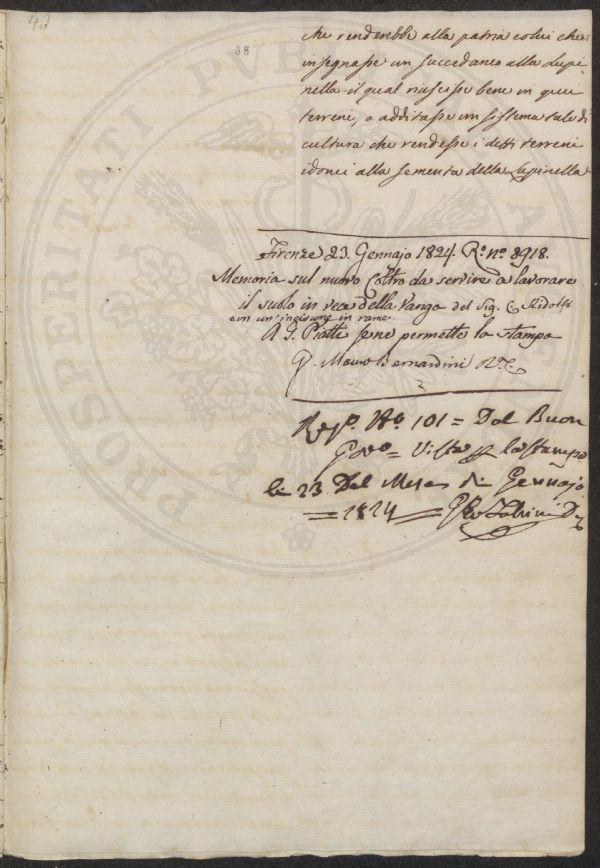 43
38
che renderebbe alla patria colui che
insegnasse un succedaneo alla Lupi-
nella il qual riuscisse bene in quei
terreni, o additasse un sistema tale di
cultura che rendesse i detti terreni
idonei alla sementa della Lupinella
Firenze 23. Gennajo 1824. Rº. nº. 8918.
Memoria sul nuovo Coltro da servire a lavorare
il suolo in vece della Vanga del Sig. C. Ridolfi
con un'incisione in rame.
A G. Piatti se ne permette la stampa
P. Mauro Bernardini
Nº 101 = Dal Buon
Govo = Vista per la stampa
li 23 Del Mese di Gennajo
= 1824 =
PROSPERITATI PVBLICAE